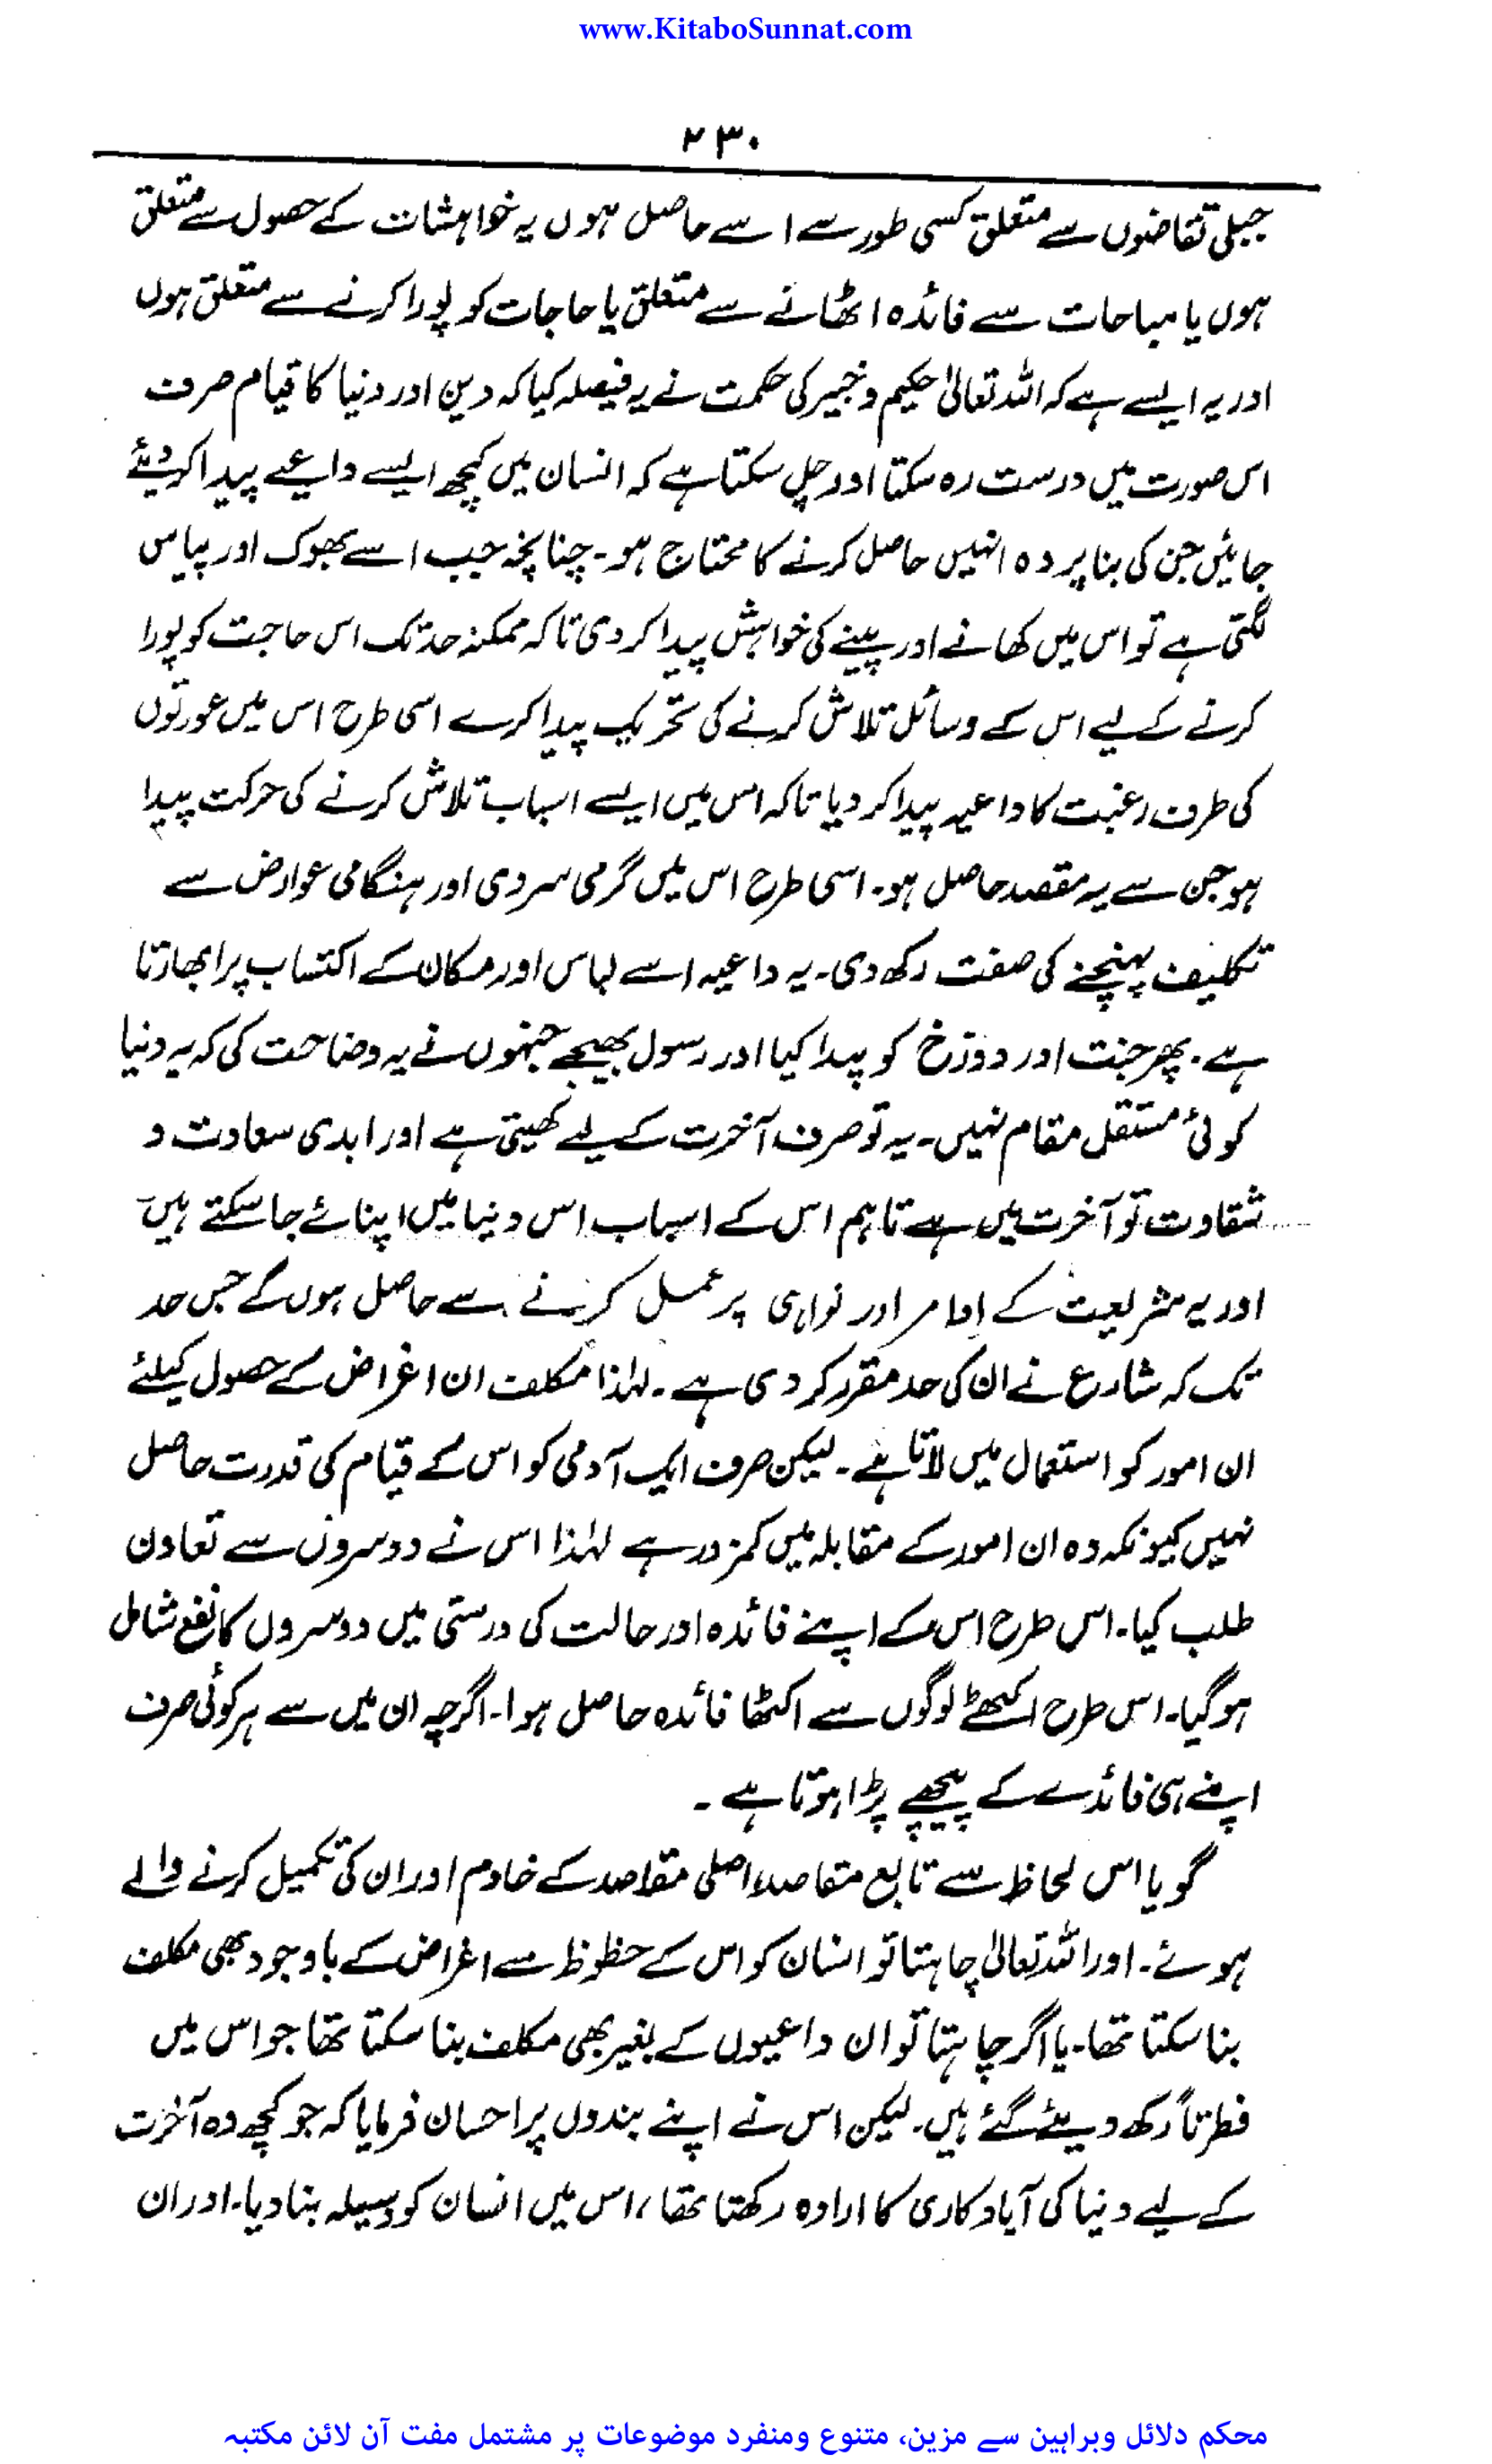 www.KitaboSunnat.com
۲۳۰
جبلی تقاضوں سے متعلق کسی طور سے اسے حاصل ہوں یہ خواہشات کے حصول سے متعلق
ہوں یا مباحات سے فائدہ اٹھانے سے متعلق یا حاجات کو پورا کرنے سے متعلق ہوں
اور یہ ایسے ہے کہ اللہ تعالیٰ حکیم و خبیر کی حکمت نے یہ فیصلہ کیا کہ دین اور دنیا کا قیام صرف
اس صورت میں درست رہ سکتا اور چل سکتا ہے کہ انسان میں کچھ ایسے داعیے پیدا کر دیئے
جائیں جن کی بنا پر وہ انہیں حاصل کرنے کا محتاج ہو۔ چنانچہ جب اسے بھوک اور پیاس
لگتی ہے تو اس میں کھانے اور پینے کی خواہش پیدا کر دی تاکہ ممکنہ حد تک اس حاجت کو پورا
کرنے کے لیے اس کے وسائل تلاش کرنے کی تحریک پیدا کرے اسی طرح اس میں عورتوں
کی طرف رغبت کا داعیہ پیدا کر دیا تاکہ اس میں ایسے اسباب تلاش کرنے کی حرکت پیدا
ہو جن سے یہ مقصد حاصل ہو۔ اسی طرح اس میں گرمی سردی اور ہنگامی عوارض سے
تکلیف پہنچنے کی صفت رکھ دی۔ یہ داعیہ اسے لباس اور مکان کے اکتساب پر ابھارتا
ہے۔ پھر جنت اور دوزخ کو پیدا کیا اور رسول بھیجے جنہوں نے یہ وضاحت کی کہ یہ دنیا
کوئی مستقل مقام نہیں۔ یہ تو صرف آخرت کے لیے کھیتی ہے اور ابدی سعادت و
شقاوت تو آخرت میں ہے تاہم اس کے اسباب اس دنیا میں اپنائے جا سکتے ہیں
اور یہ شریعت کے اوامر اور نواہی پر عمل کرنے سے حاصل ہوں گے جس حد
تک کہ شارع نے ان کی حد مقرر کر دی ہے۔ لہٰذا مکلف ان اغراض کے حصول کیلئے
ان امور کو استعمال میں لاتا ہے۔ لیکن صرف ایک آدمی کو اس کے قیام کی قدرت حاصل
نہیں کیونکہ وہ ان امور کے مقابلہ میں کمزور ہے لہٰذا اس نے دوسروں سے تعاون
طلب کیا۔ اس طرح اس کے اپنے فائدہ اور حالت کی درستی میں دوسروں کا نفع شامل
ہو گیا۔ اس طرح اکٹھے لوگوں سے اکٹھا فائدہ حاصل ہوا۔ اگرچہ ان میں سے ہر کوئی صرف
اپنے ہی فائدے کے پیچھے پڑا ہوتا ہے۔
گویا اس لحاظ سے تابع مقاصد، اصلی مقاصد کے خادم اور ان کی تکمیل کرنے والے
ہوئے۔ اور اللہ تعالیٰ چاہتا تو انسان کو اس کے حظوظ سے اغراض کے باوجود بھی مکلف
بنا سکتا تھا۔ یا اگر چاہتا تو ان داعیوں کے بغیر بھی مکلف بنا سکتا تھا جو اس میں
فطرتاً رکھ دیئے گئے ہیں۔ لیکن اس نے اپنے بندوں پر احسان فرمایا کہ جو کچھ وہ آخرت
کے لیے دنیا کی آبادکاری کا ارادہ رکھتا تھا، اس میں انسان کو وسیلہ بنا دیا۔ اور ان
محکم دلائل وبراہین سے مزین، متنوع ومنفرد موضوعات پر مشتمل مفت آن لائن مکتبہ